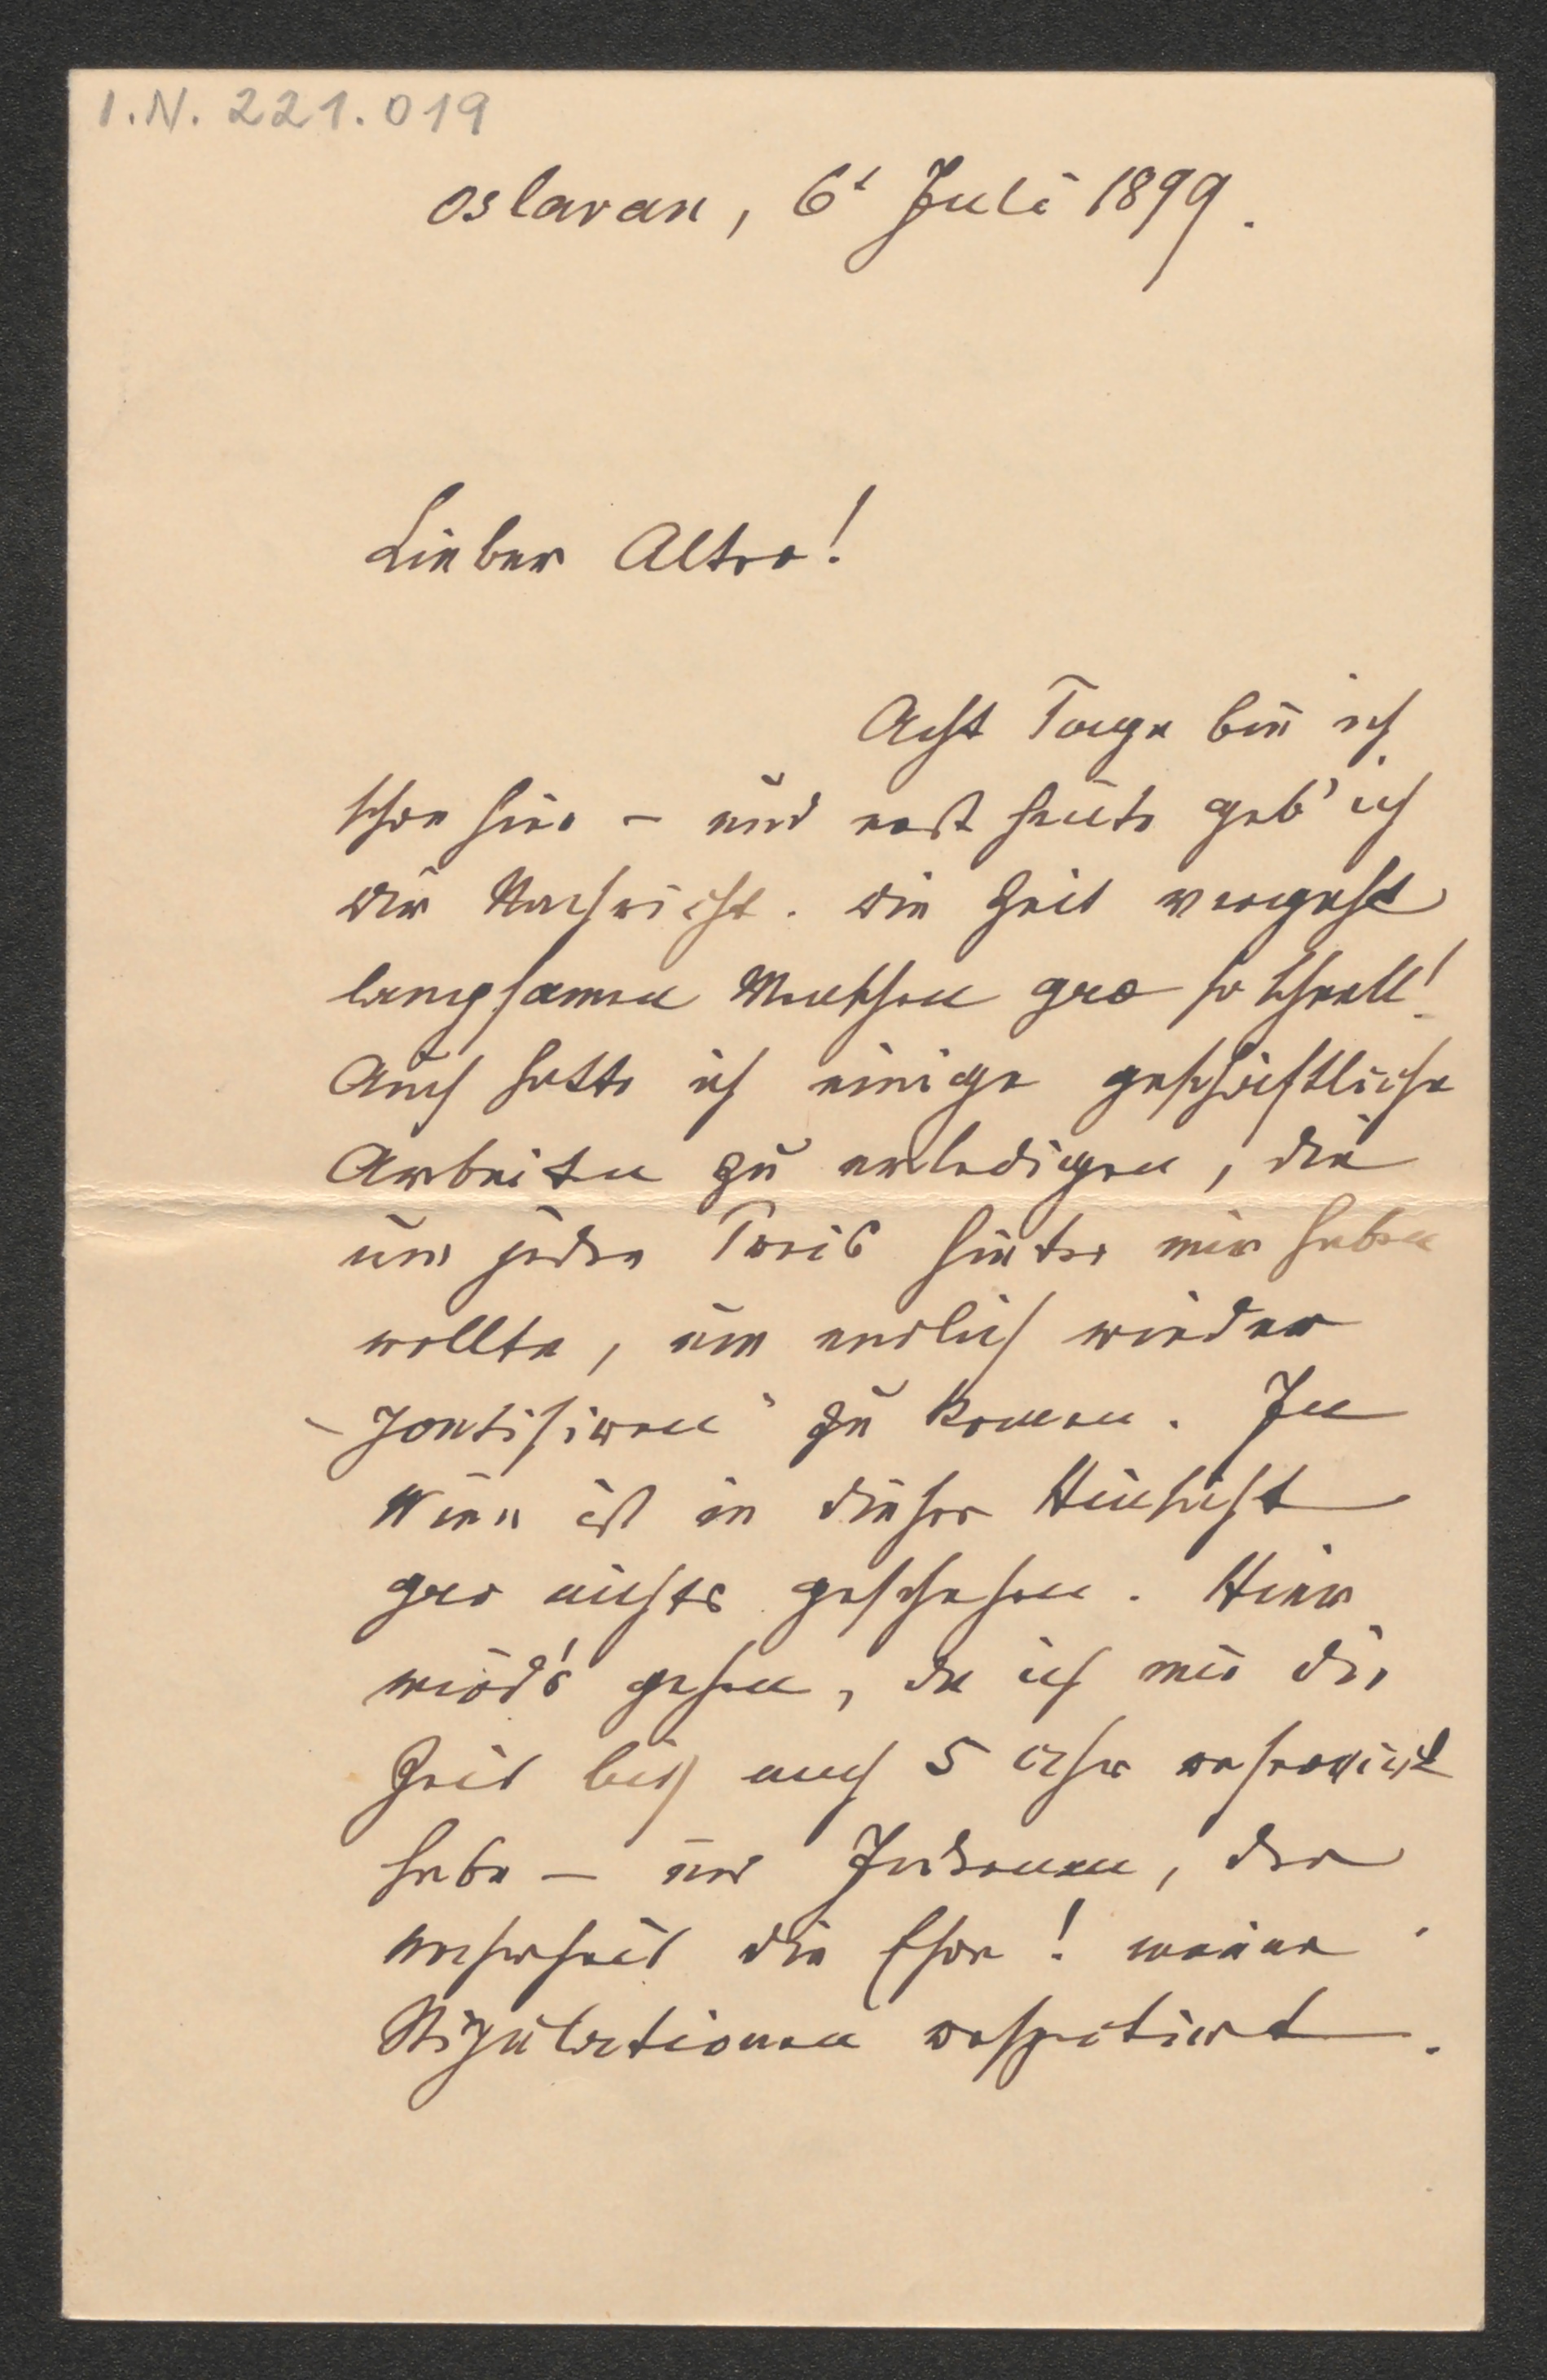 I.N. 221.019
Oslavan, 6t Juli 1899.
Lieber Alter!
Acht Tage bin ich
schon hier – und erst heute geb' ich
Dir Nachricht. Die Zeit vergeht
langsamen Menschen gar so schnell!
Auch hatte ich einige geschäftliche
Arbeiten zu erledigen, die
um jeden Preis hinter mir haben
wollte, um endlich wieder
zu komen. In
Wien ist in dieser Hinsicht
gar nichts geschehen. Hier
wird's gehen, da ich mir die
Zeit bis nach 5 Uhr reservirt
habe – und Jederman, der
Wahrheit die Ehre! meine
Stipulationen respectirt.